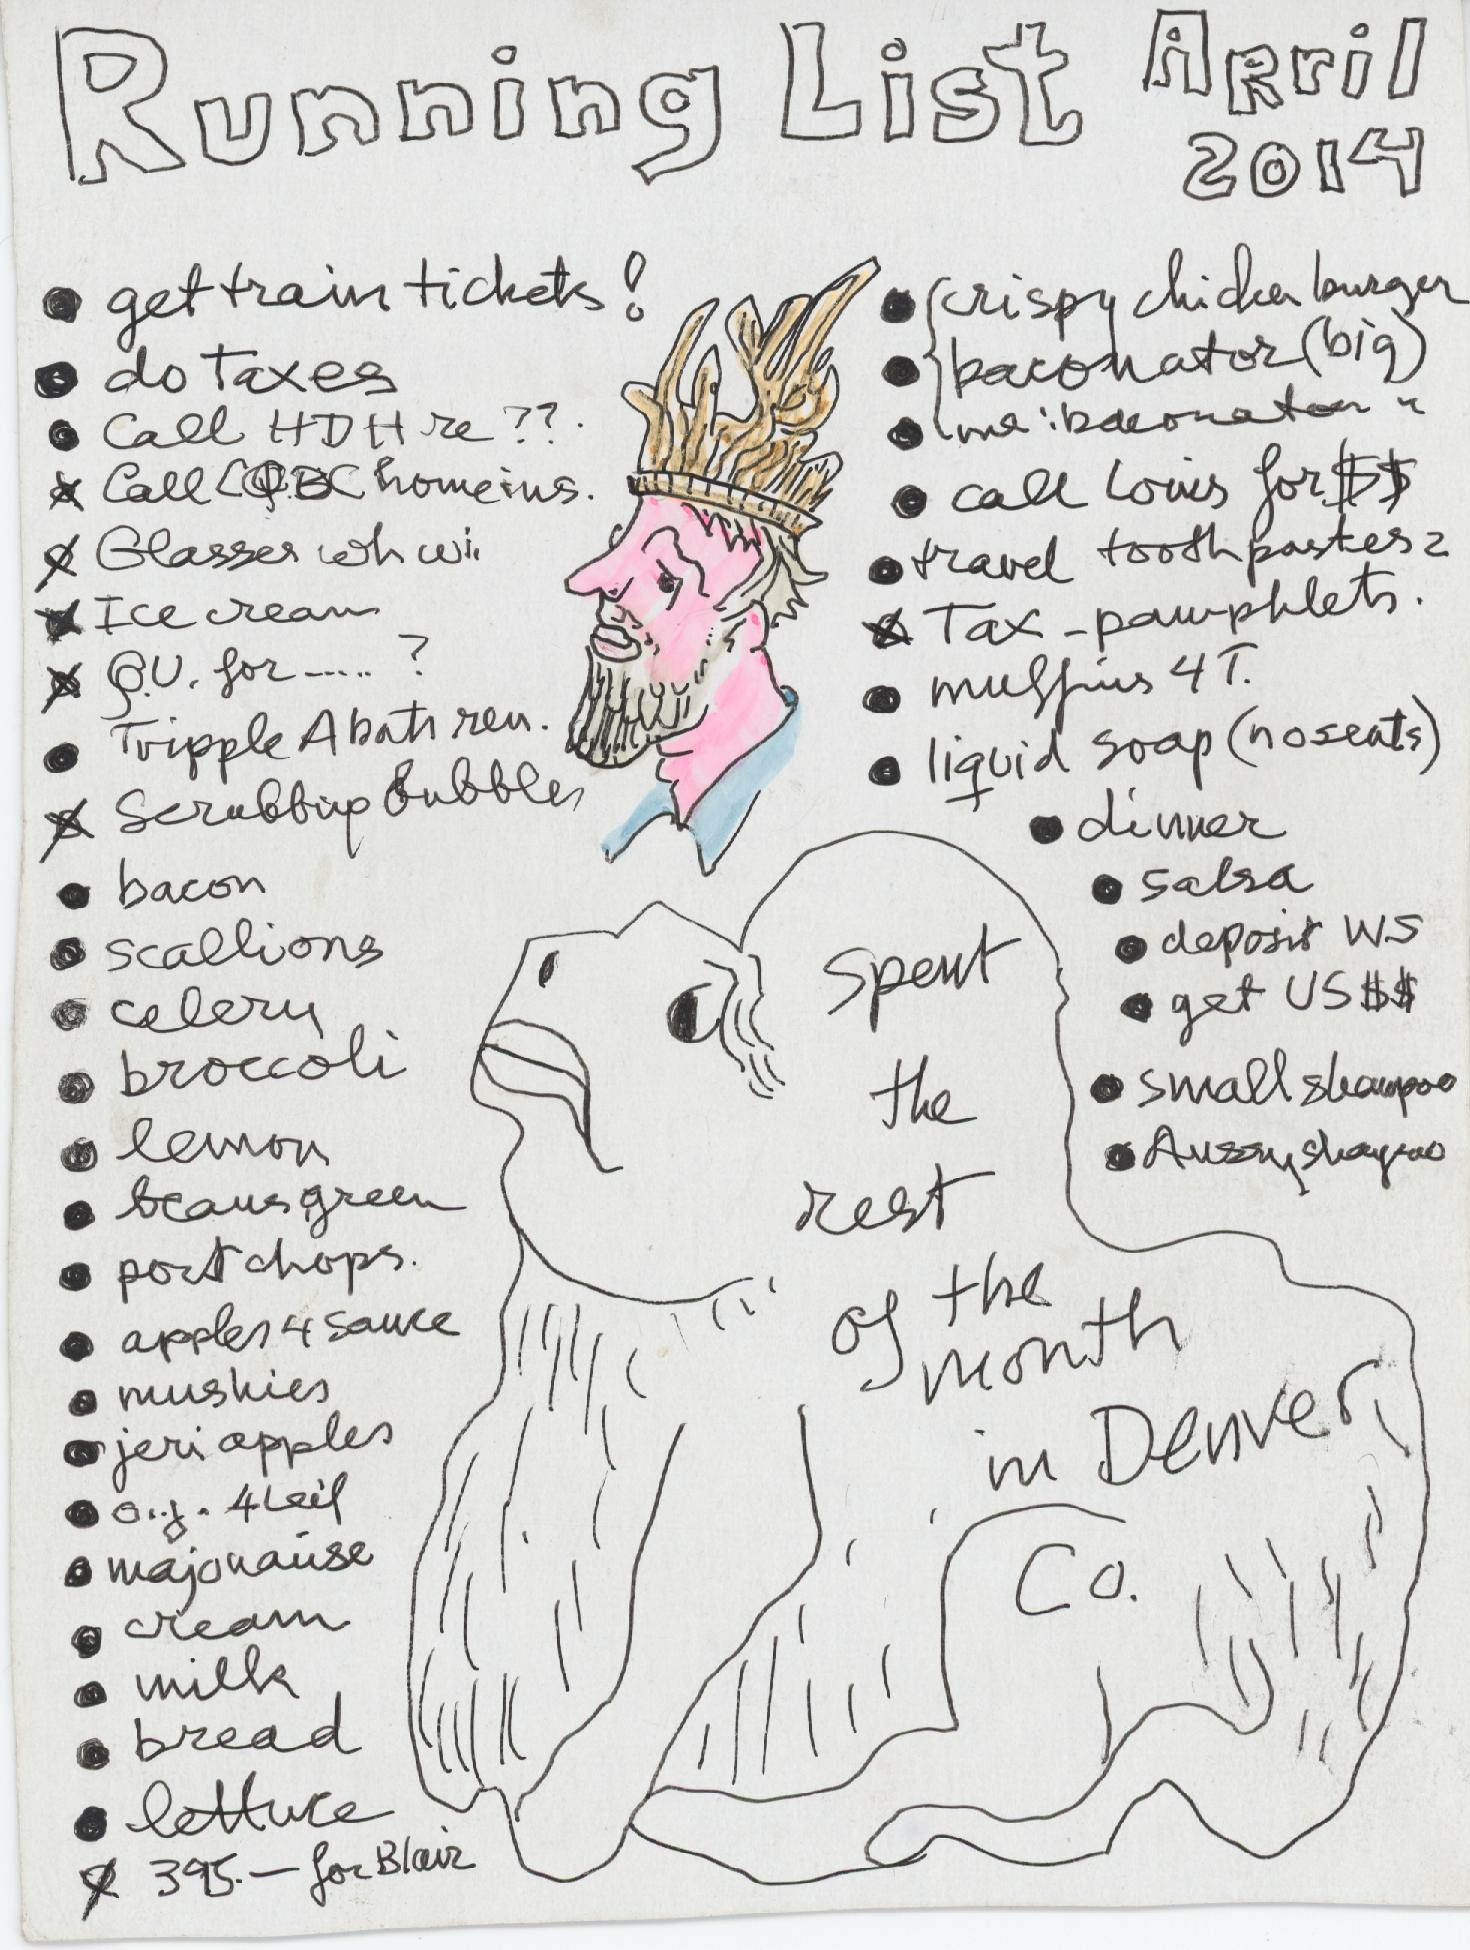 Running List April
2014
get train tickets!
do Taxes
Call HDH re ??.
Call homeins.
Glasses
Ice cream
for ..... ?
Tripple A bath ren.
Scrubbing Bubbles
bacon
scallions
celery
broccoli
lemon
beans green
pork chops.
apples 4 sauce
mushies
jeri apples
o.j. 4 Leif
majonaise
cream
milk
bread
lettuce
395.— for Blair
crispy chicken burger
baconator (big)
me: baconator "
call Louis for $$
travel toothpastes 2
Tax - pamphlets.
muffins 4 T.
liquid soap (no seats)
dinner
salsa
deposit WS
get US $$
small shampoo
Aussy shampoo
spent
the
rest
of the
month
in Denver,
Co.